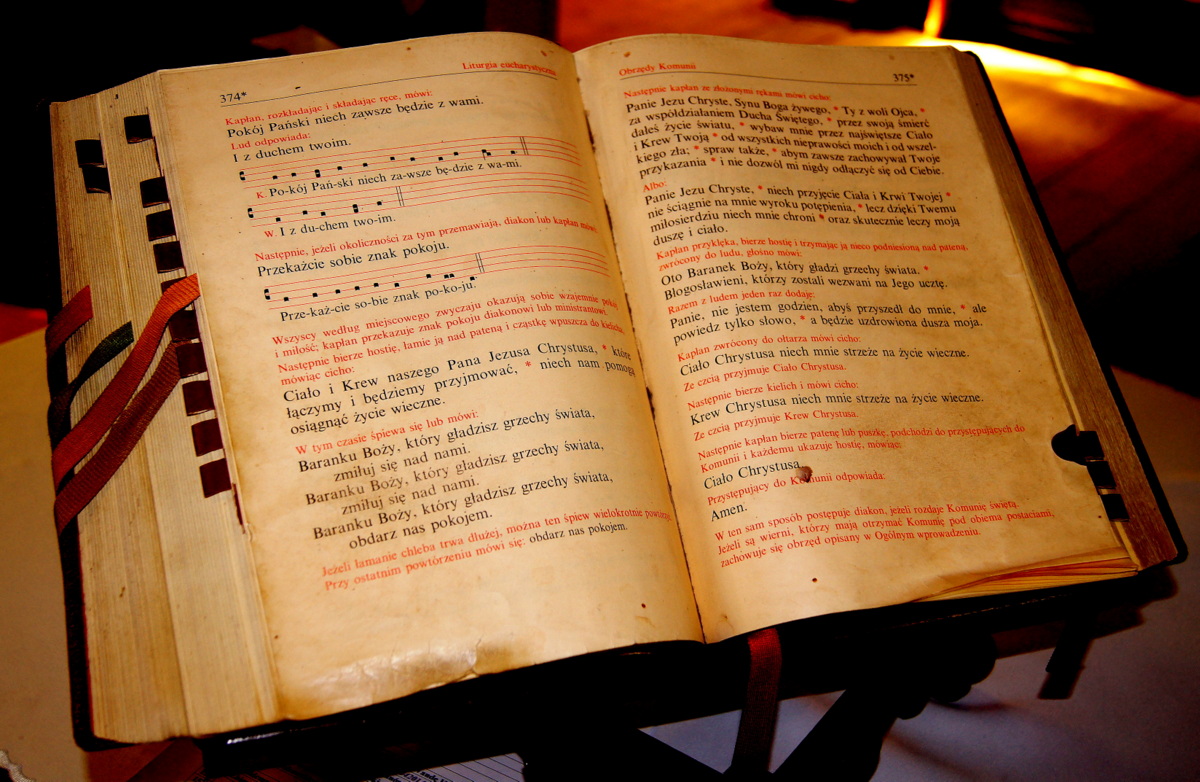 374*
Liturgia eucharystyczna
Kapłan, rozkładając i składając ręce, mówi:
Pokój Pański niech zawsze będzie z wami.
Lud odpowiada:
I z duchem twoim.
K. Po-kój Pań-ski niech za-wsze bę-dzie z wa-mi.
W. I z du-chem two-im.
Następnie, jeżeli okoliczności za tym przemawiają, diakon lub kapłan mówi:
Przekażcie sobie znak pokoju.
Prze-każ-cie so-bie znak po-ko-ju.
Wszyscy według miejscowego zwyczaju okazują sobie wzajemnie pokój
i miłość; kapłan przekazuje znak pokoju diakonowi lub ministrantowi.
Następnie bierze hostię, łamie ją nad pateną i cząstkę wpuszcza do kielicha,
mówiąc cicho:
Ciało i Krew naszego Pana Jezusa Chrystusa, * które
łączymy i będziemy przyjmować, * niech nam pomogą
osiągnąć życie wieczne.
W tym czasie śpiewa się lub mówi:
Baranku Boży, który gładzisz grzechy świata,
zmiłuj się nad nami.
Baranku Boży, który gładzisz grzechy świata,
zmiłuj się nad nami.
Baranku Boży, który gładzisz grzechy świata,
obdarz nas pokojem.
Jeżeli łamanie chleba trwa dłużej, można ten śpiew wielokrotnie powtarzać.
Przy ostatnim powtórzeniu mówi się: obdarz nas pokojem.
Obrzędy Komunii
375*
Następnie kapłan ze złożonymi rękami mówi cicho:
Panie Jezu Chryste, Synu Boga żywego, * Ty z woli Ojca, *
za współdziałaniem Ducha Świętego, * przez swoją śmierć
dałeś życie światu, * wybaw mnie przez najświętsze Ciało
i Krew Twoją * od wszystkich nieprawości moich i od wszel-
kiego zła; * spraw także, * abym zawsze zachowywał Twoje
przykazania * i nie dozwól mi nigdy odłączyć się od Ciebie.
Albo:
Panie Jezu Chryste, * niech przyjęcie Ciała i Krwi Twojej *
nie ściągnie na mnie wyroku potępienia, * lecz dzięki Twemu
miłosierdziu niech mnie chroni * oraz skutecznie leczy moją
duszę i ciało.
Kapłan przyklęka, bierze hostię i trzymając ją nieco podniesioną nad pateną,
zwrócony do ludu, głośno mówi:
Oto Baranek Boży, który gładzi grzechy świata. *
Błogosławieni, którzy zostali wezwani na Jego ucztę.
Razem z ludem jeden raz dodaje:
Panie, nie jestem godzien, abyś przyszedł do mnie, * ale
powiedz tylko słowo, * a będzie uzdrowiona dusza moja.
Kapłan zwrócony do ołtarza mówi cicho:
Ciało Chrystusa niech mnie strzeże na życie wieczne.
Ze czcią przyjmuje Ciało Chrystusa.
Następnie bierze kielich i mówi cicho:
Krew Chrystusa niech mnie strzeże na życie wieczne.
Ze czcią przyjmuje Krew Chrystusa.
Następnie kapłan bierze patenę lub puszkę, podchodzi do przystępujących do
Komunii i każdemu ukazuje hostię, mówiąc:
Ciało Chrystusa
Przystępujący do Komunii odpowiada:
Amen.
W ten sam sposób postępuje diakon, jeżeli rozdaje Komunię świętą.
Jeżeli są wierni, którzy mają otrzymać Komunię pod obiema postaciami,
zachowuje się obrzęd opisany w Ogólnym wprowadzeniu.